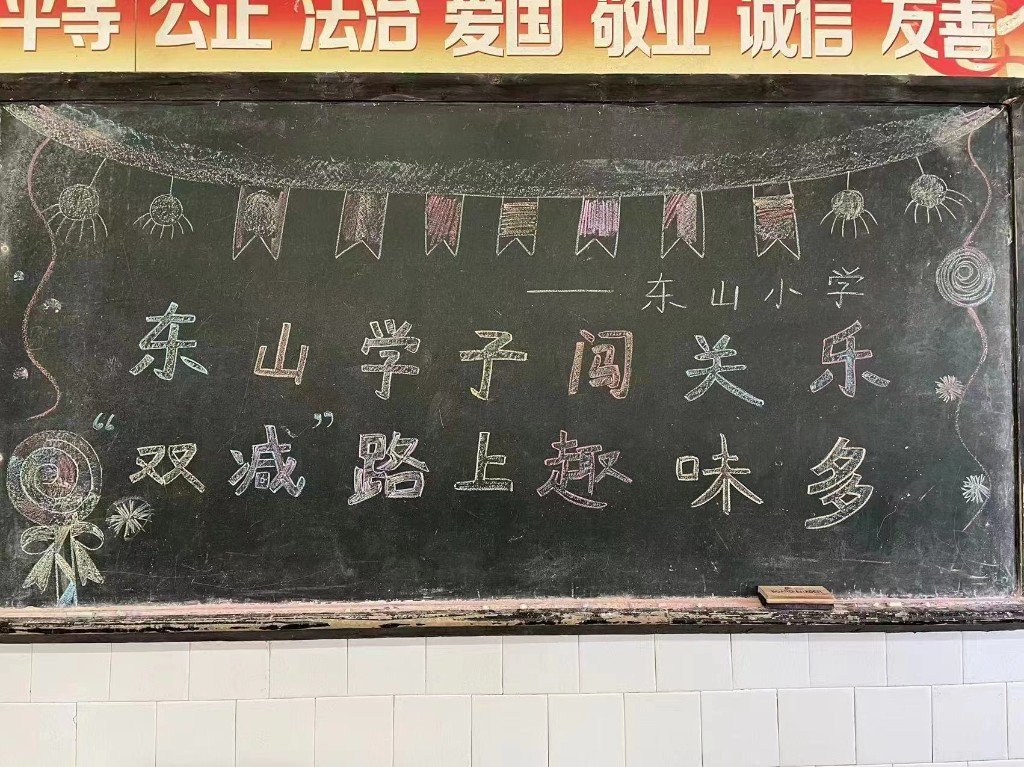 平等 公正 法治 爱国 敬业 诚信 友善
——东山小学
东山学子闯关乐
“双减”路上趣味多